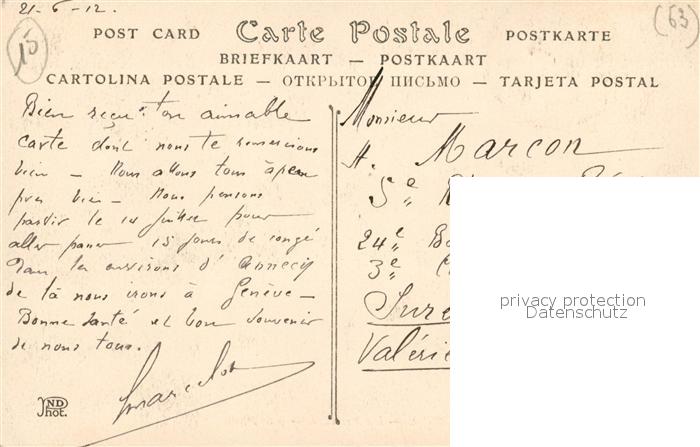 21-6-12.
15
(63)
POST CARD Carte Postale POSTKARTE
BRIEFKAART — POSTKAART
CARTOLINA POSTALE — ОТКРЫТОЕ ПИСЬМО — TARJETA POSTAL
Bien reçu ton aimable
carte dont nous te remercions
bien — Nous allons tous à peu
près bien — Nous pensons
partir le 14 Juillet pour
aller passer 15 jours de congé
dans les environs d'Annecy
de là nous irons à Genève —
Bonne santé et bon souvenir
de nous tous.
ND
Phot.
Monsieur
H. Marcon
5e
24e
3e
Sure
Valérie
privacy protection
Datenschutz